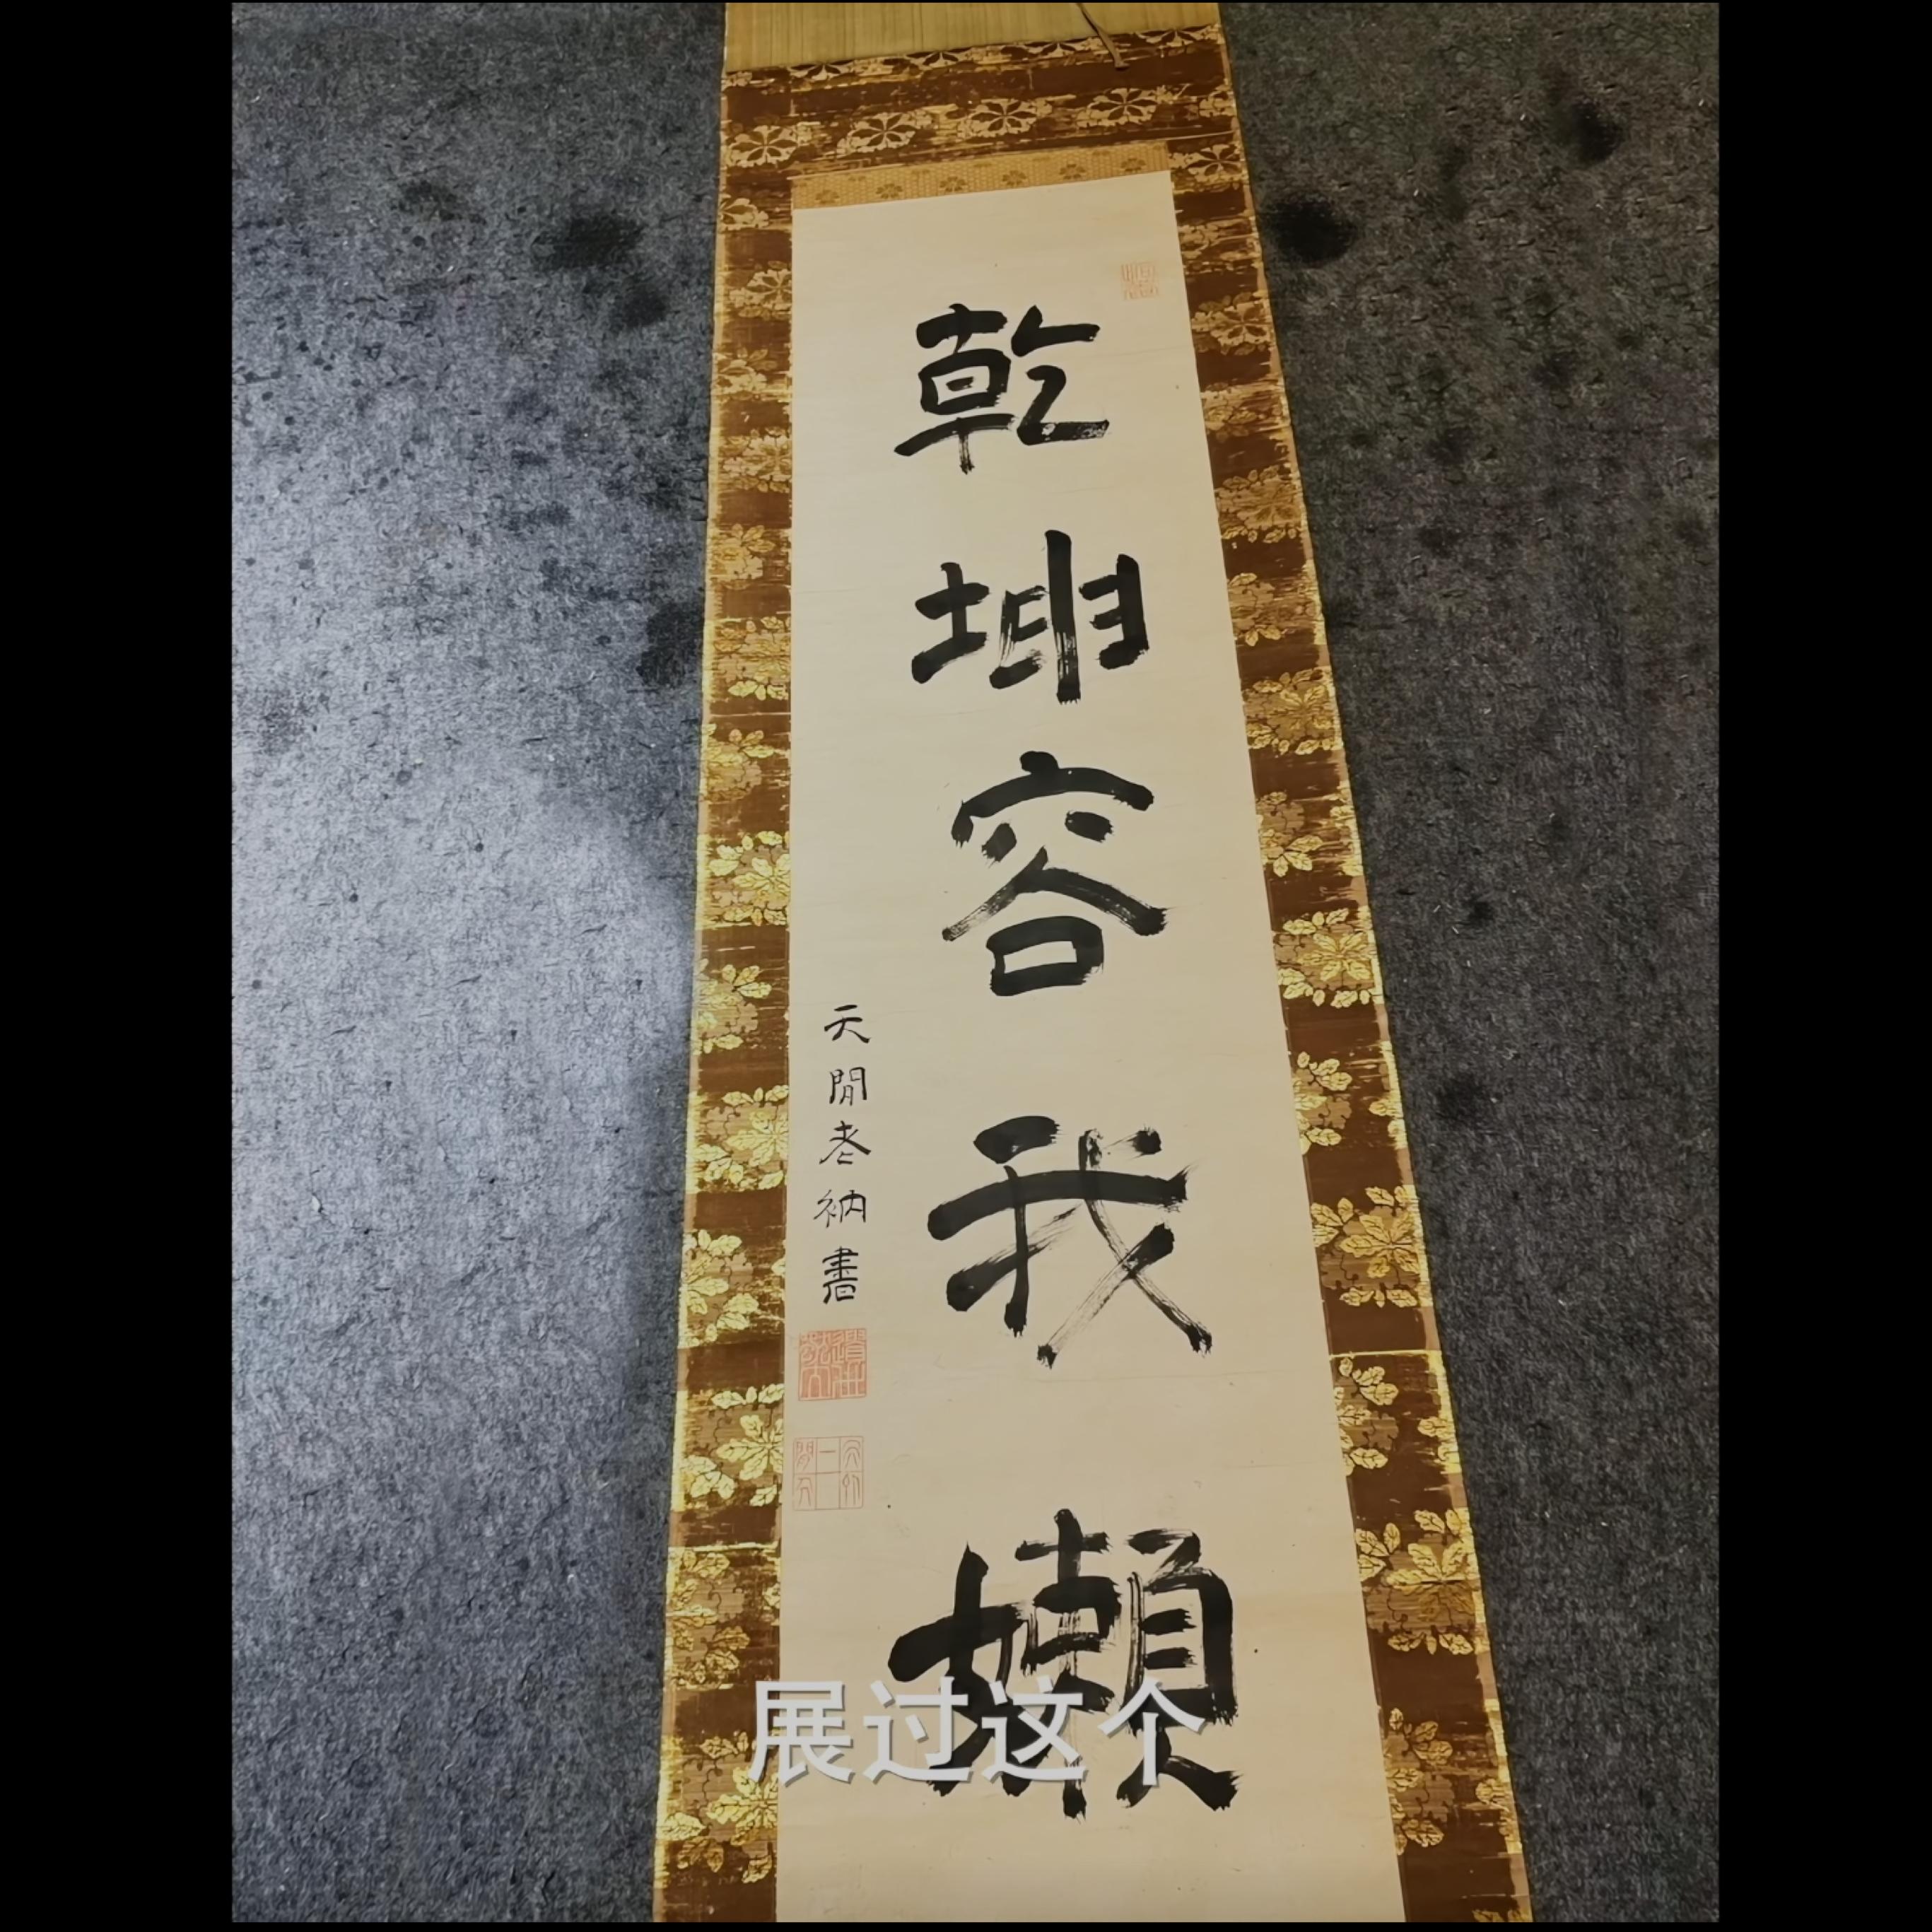 乾坤容我嬾
天閒老衲書
展过这个